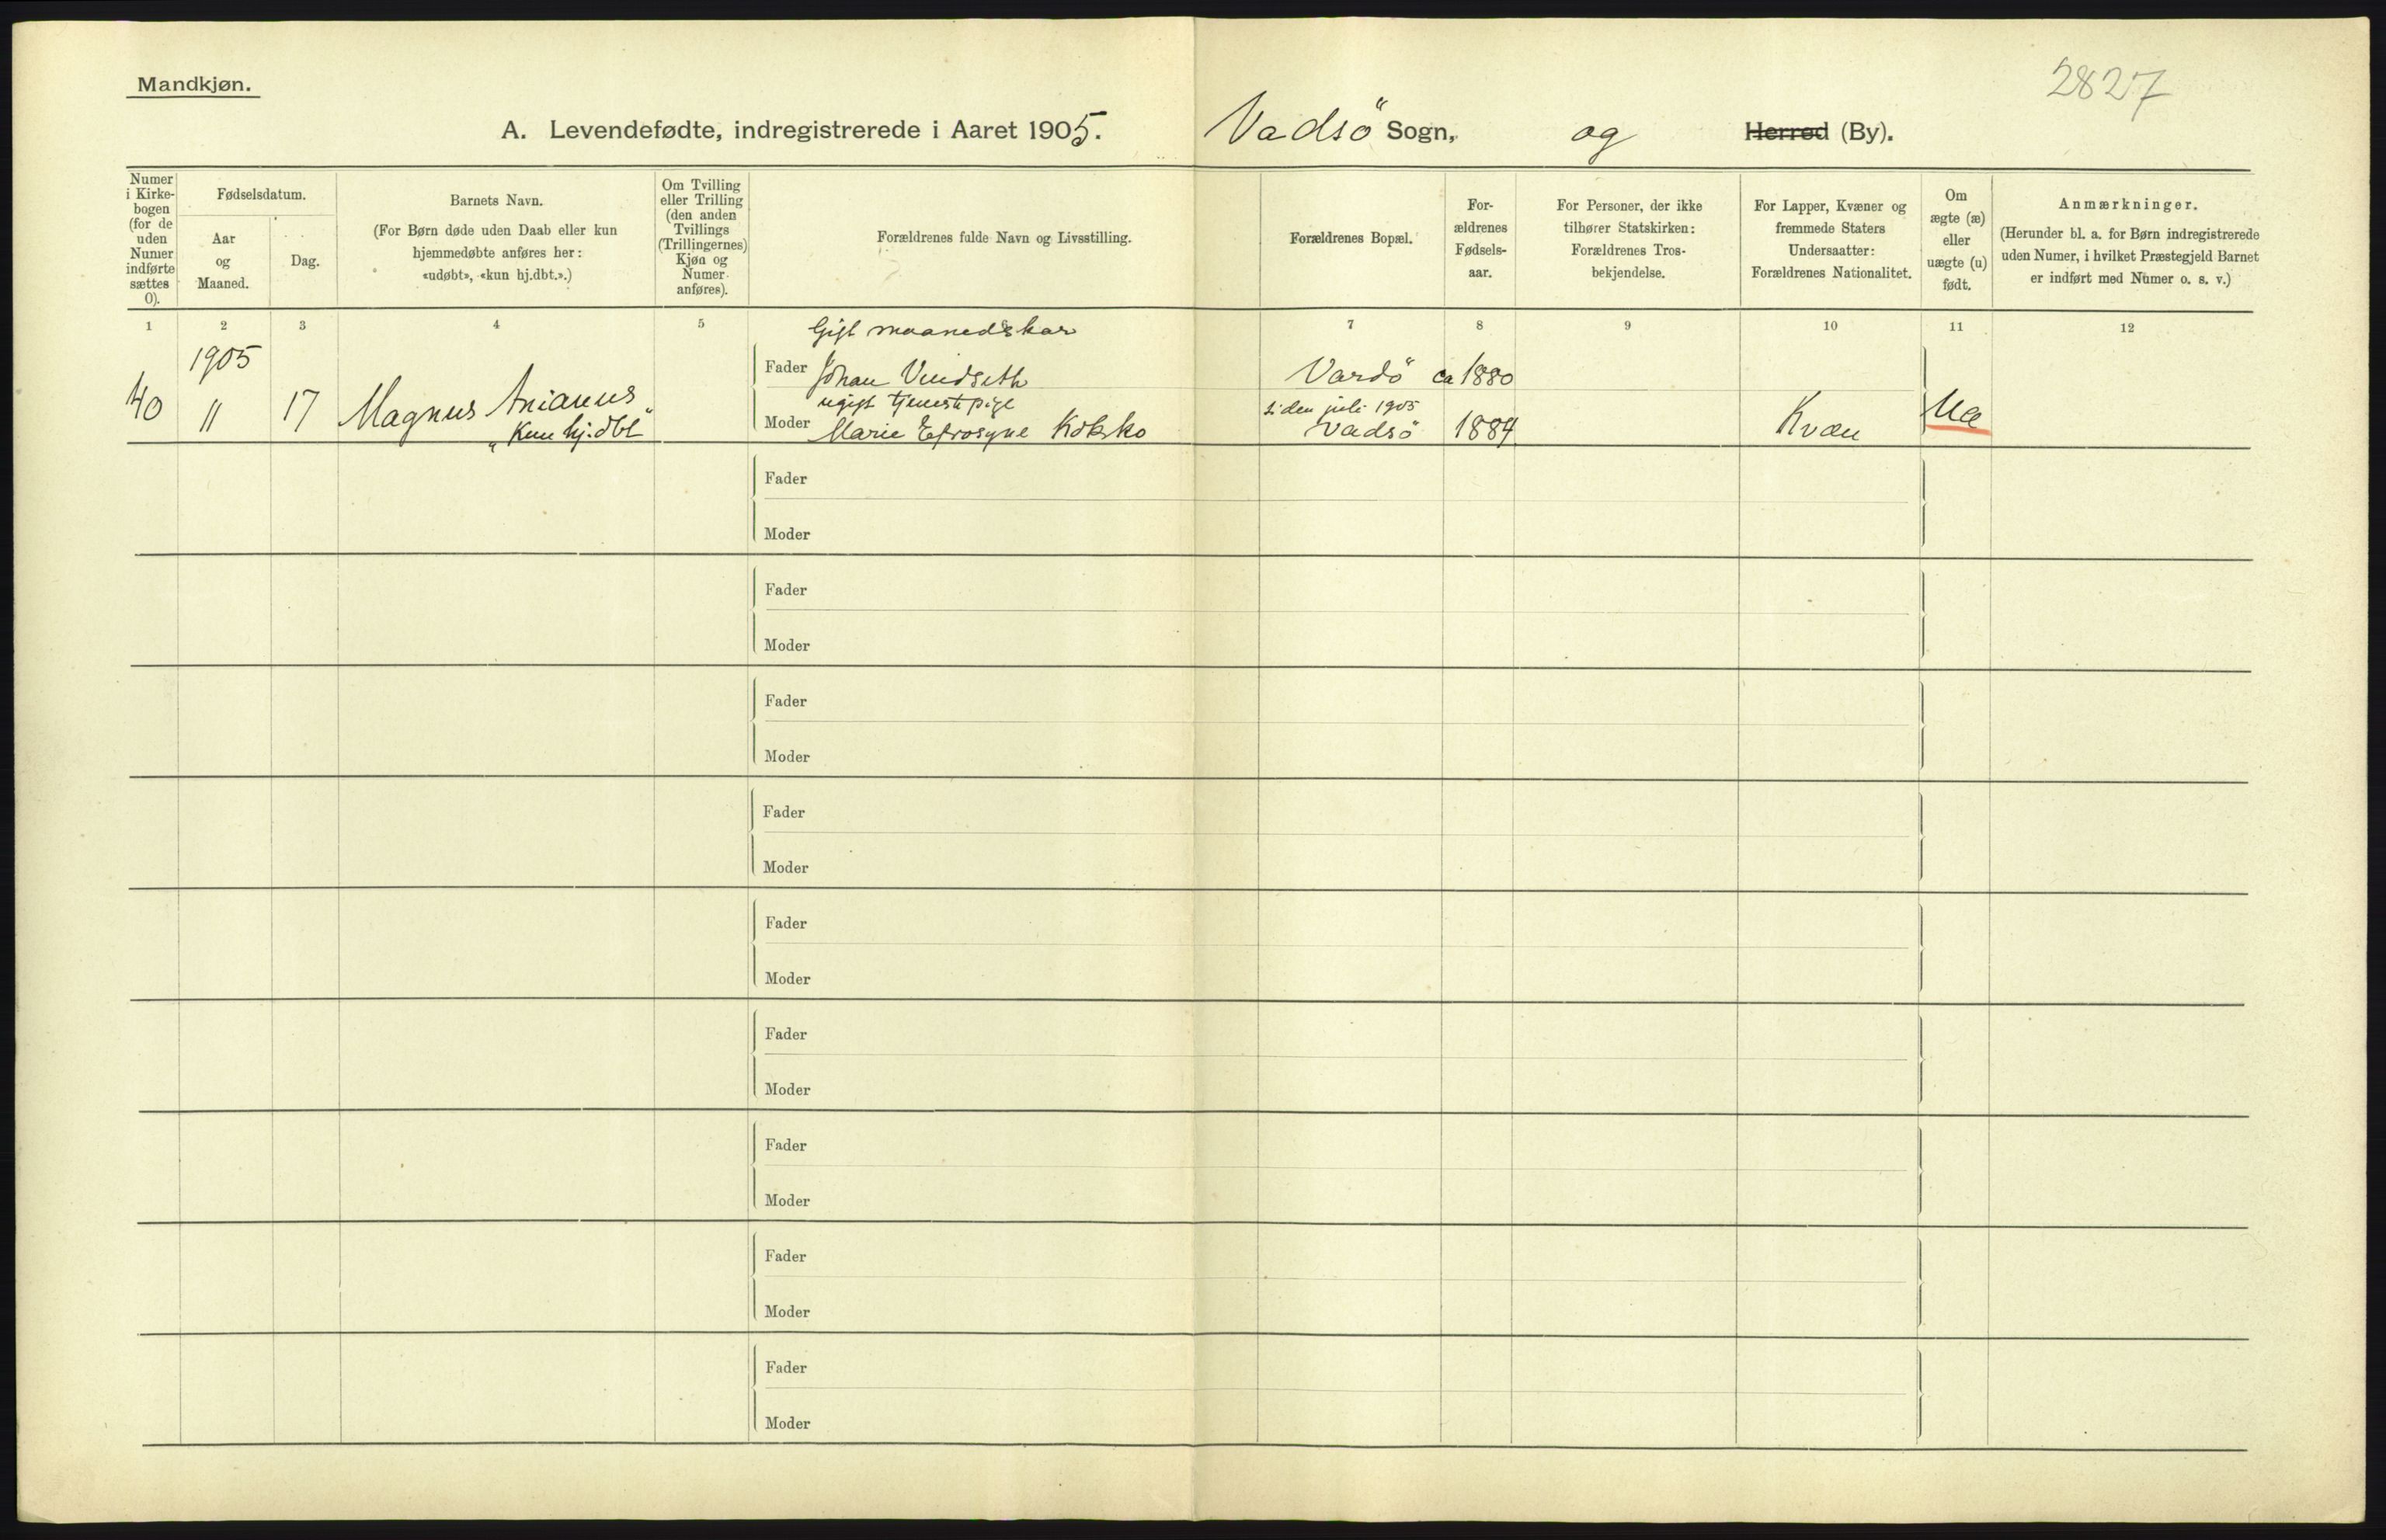 Mandkjøn.
2827
A. Levendefødte, indregistrerede i Aaret 1905. Vadsö Sogn, og Herred (By).
Numer i Kirke-bogen (for de uden Numer indførte sættes 0).
Fødselsdatum.
Aar og Maaned.
Dag.
Barnets Navn.
(For Børn døde uden Daab eller kun
hjemmedøbte anføres her:
«udøbt», «kun hj.dbt.».)
Om Tvilling
eller Trilling
(den anden
Tvillings
(Trillingernes)
Kjøn og
Numer
anføres).
Forældrenes fulde Navn og Livsstilling.
Forældrenes Bopæl.
For-
ældrenes
Fødsels-
aar.
For Personer, der ikke
tilhører Statskirken:
Forældrenes Tros-
bekjendelse.
For Lapper, Kvæner og
fremmede Staters
Undersaatter:
Forældrenes Nationalitet.
Om
ægte (æ)
eller
uægte (u)
født.
Anmærkninger.
(Herunder bl. a. for Børn indregistrerede
uden Numer, i hvilket Præstegjeld Barnet
er indført med Numer o. s. v.)
1 2 3 4 5 7 8 9 10 11 12
Gift maanedskar
1905
Fader Johan Vindseth Vardö ca 1880
40 11 17 Magnus Arianus
ugift tjenestepige siden juli 1905
"Kun hj.dbt" Moder Marie Efrosyne Koksko Vadsö 1884 Kvæn Uæ
Fader
Moder
Fader
Moder
Fader
Moder
Fader
Moder
Fader
Moder
Fader
Moder
Fader
Moder
Fader
Moder
Fader
Moder